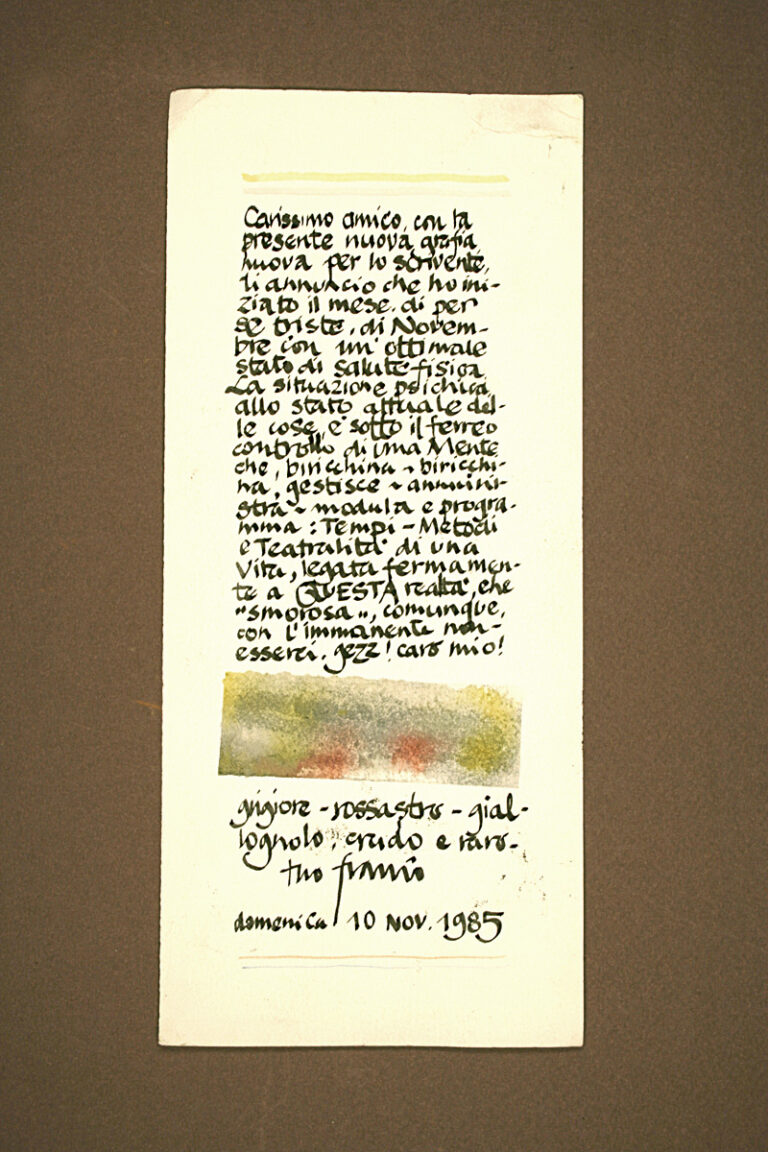 Carissimo amico, con la
presente nuova grafia,
nuova per lo scrivente,
ti annuncio che ho ini-
ziato il mese, di per
sé triste, di Novem-
bre con un' ottimale
stato di salute fisica.
La situazione psichica,
allo stato attuale del-
le cose, e' sotto il ferreo
controllo di una Mente
che, biricchina ~ biricchi-
na, gestisce ~ ammini-
stra ~ modula e progra-
mma : Tempi - Metodi
e Teatralità di una
Vita, legata fermamen-
te a QUESTA realtà, che
"smorosa", comunque,
con l'immanente non-
esserci. gezz! caro mio!
grigiore - rossastro - gial-
lognolo, crudo e raro.
tuo franco
domenica 10 NOV. 1985